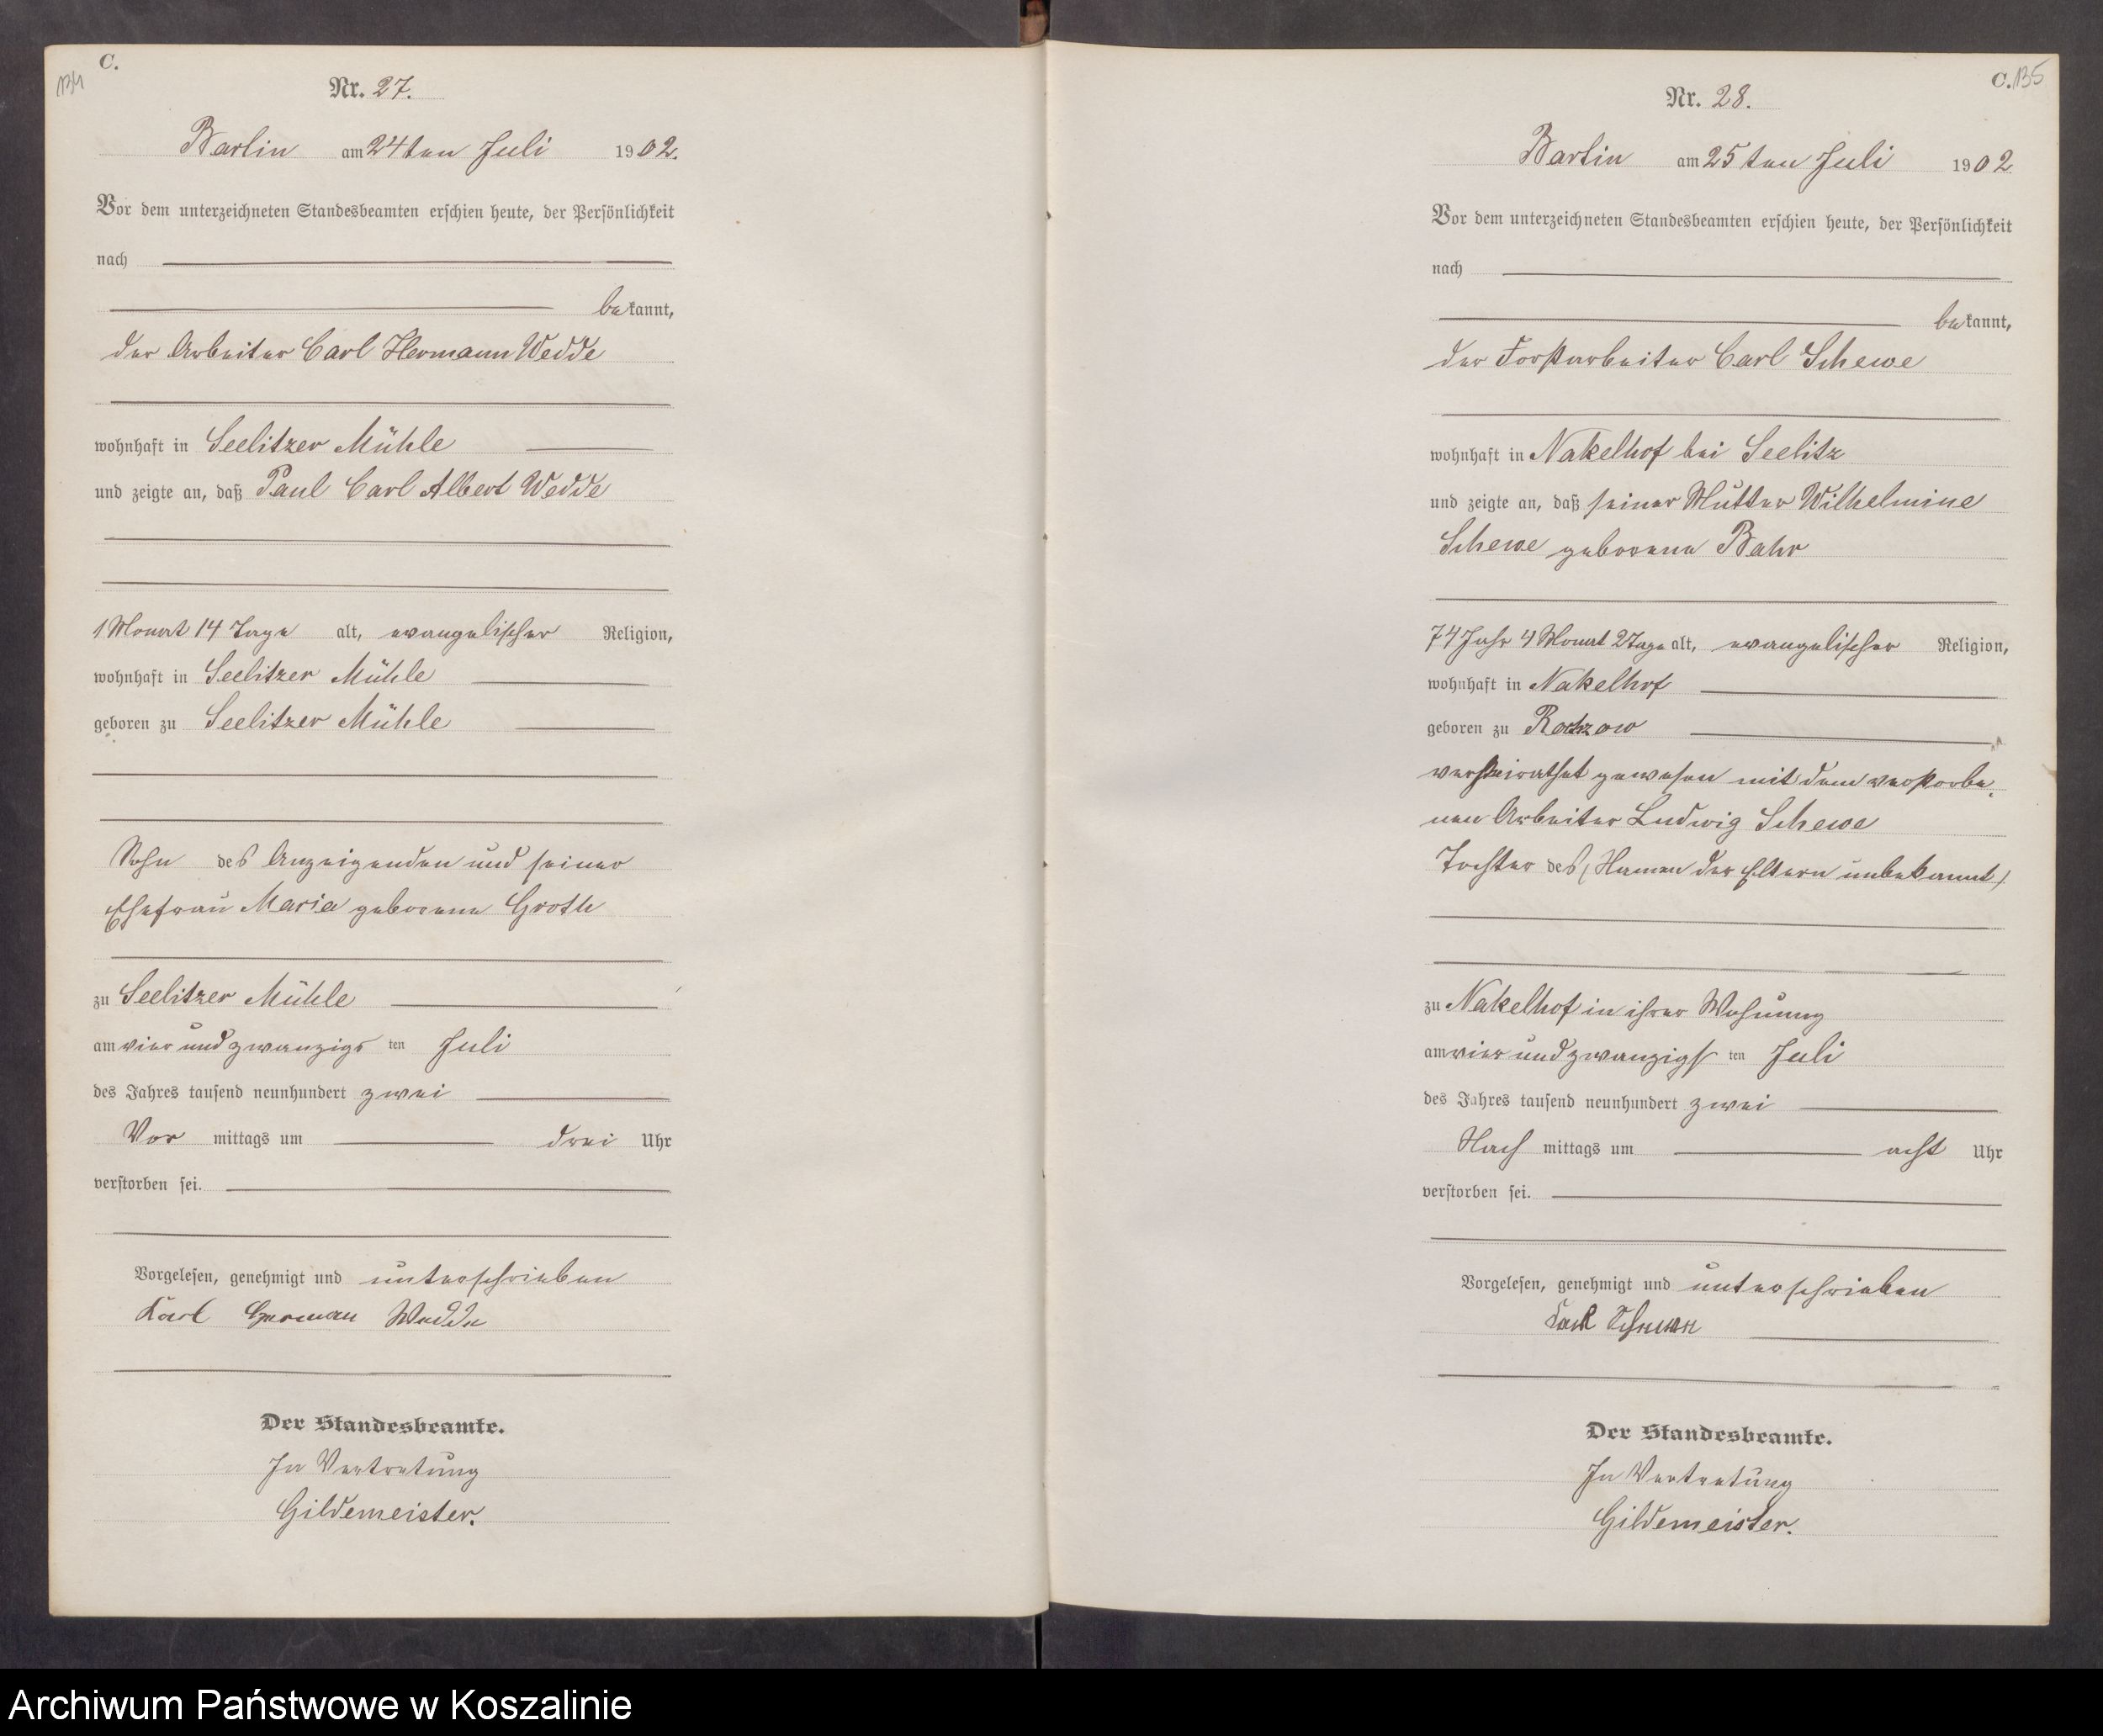 C.
134
Nr. 27.
Barlin am 24ten Juli 1902.
Vor dem unterzeichneten Standesbeamten erschien heute, der Persönlichkeit
nach
bekannt,
der Arbeiter Carl Hermann Wedde
wohnhaft in Seelitzer Mühle
und zeigte an, daß Paul Carl Albert Wedde
1 Monat 14 Tage alt, evangelischer Religion,
wohnhaft in Seelitzer Mühle
geboren zu Seelitzer Mühle
Sohn des Anzeigenden und seiner
Ehefrau Maria geborene Groth
zu Seelitzer Mühle
am vier und zwanzigs ten Juli
des Jahres tausend neunhundert zwei
Vor mittags um drei Uhr
verstorben sei.
Vorgelesen, genehmigt und unterschrieben
Karl Herman Wedde
Der Standesbeamte.
In Vertretung
Gildemeister.
C. 135
Nr. 28.
Barlin am 25ten Juli 1902
Vor dem unterzeichneten Standesbeamten erschien heute, der Persönlichkeit
nach
bekannt,
der Forstarbeiter Carl Schewe
wohnhaft in Nakelhof bei Seelitz
und zeigte an, daß seiner Mutter Wilhelmine
Schewe geborene Bahr
74 Jahr 4 Monat 2 Tage alt, evangelischer Religion,
wohnhaft in Nakelhof
geboren zu
verheirathet gewesen mit dem verstorbe-
nen Arbeiter Ludwig Schewe
Tochter des (Namen der Eltern unbekannt)
zu Nakelhof in ihrer Wohnung
am vier und zwanzigs ten Juli
des Jahres tausend neunhundert zwei
Nach mittags um acht Uhr
verstorben sei.
Vorgelesen, genehmigt und unterschrieben
Karl
Der Standesbeamte.
In Vertretung
Gildemeister.
Archiwum Państwowe w Koszalinie